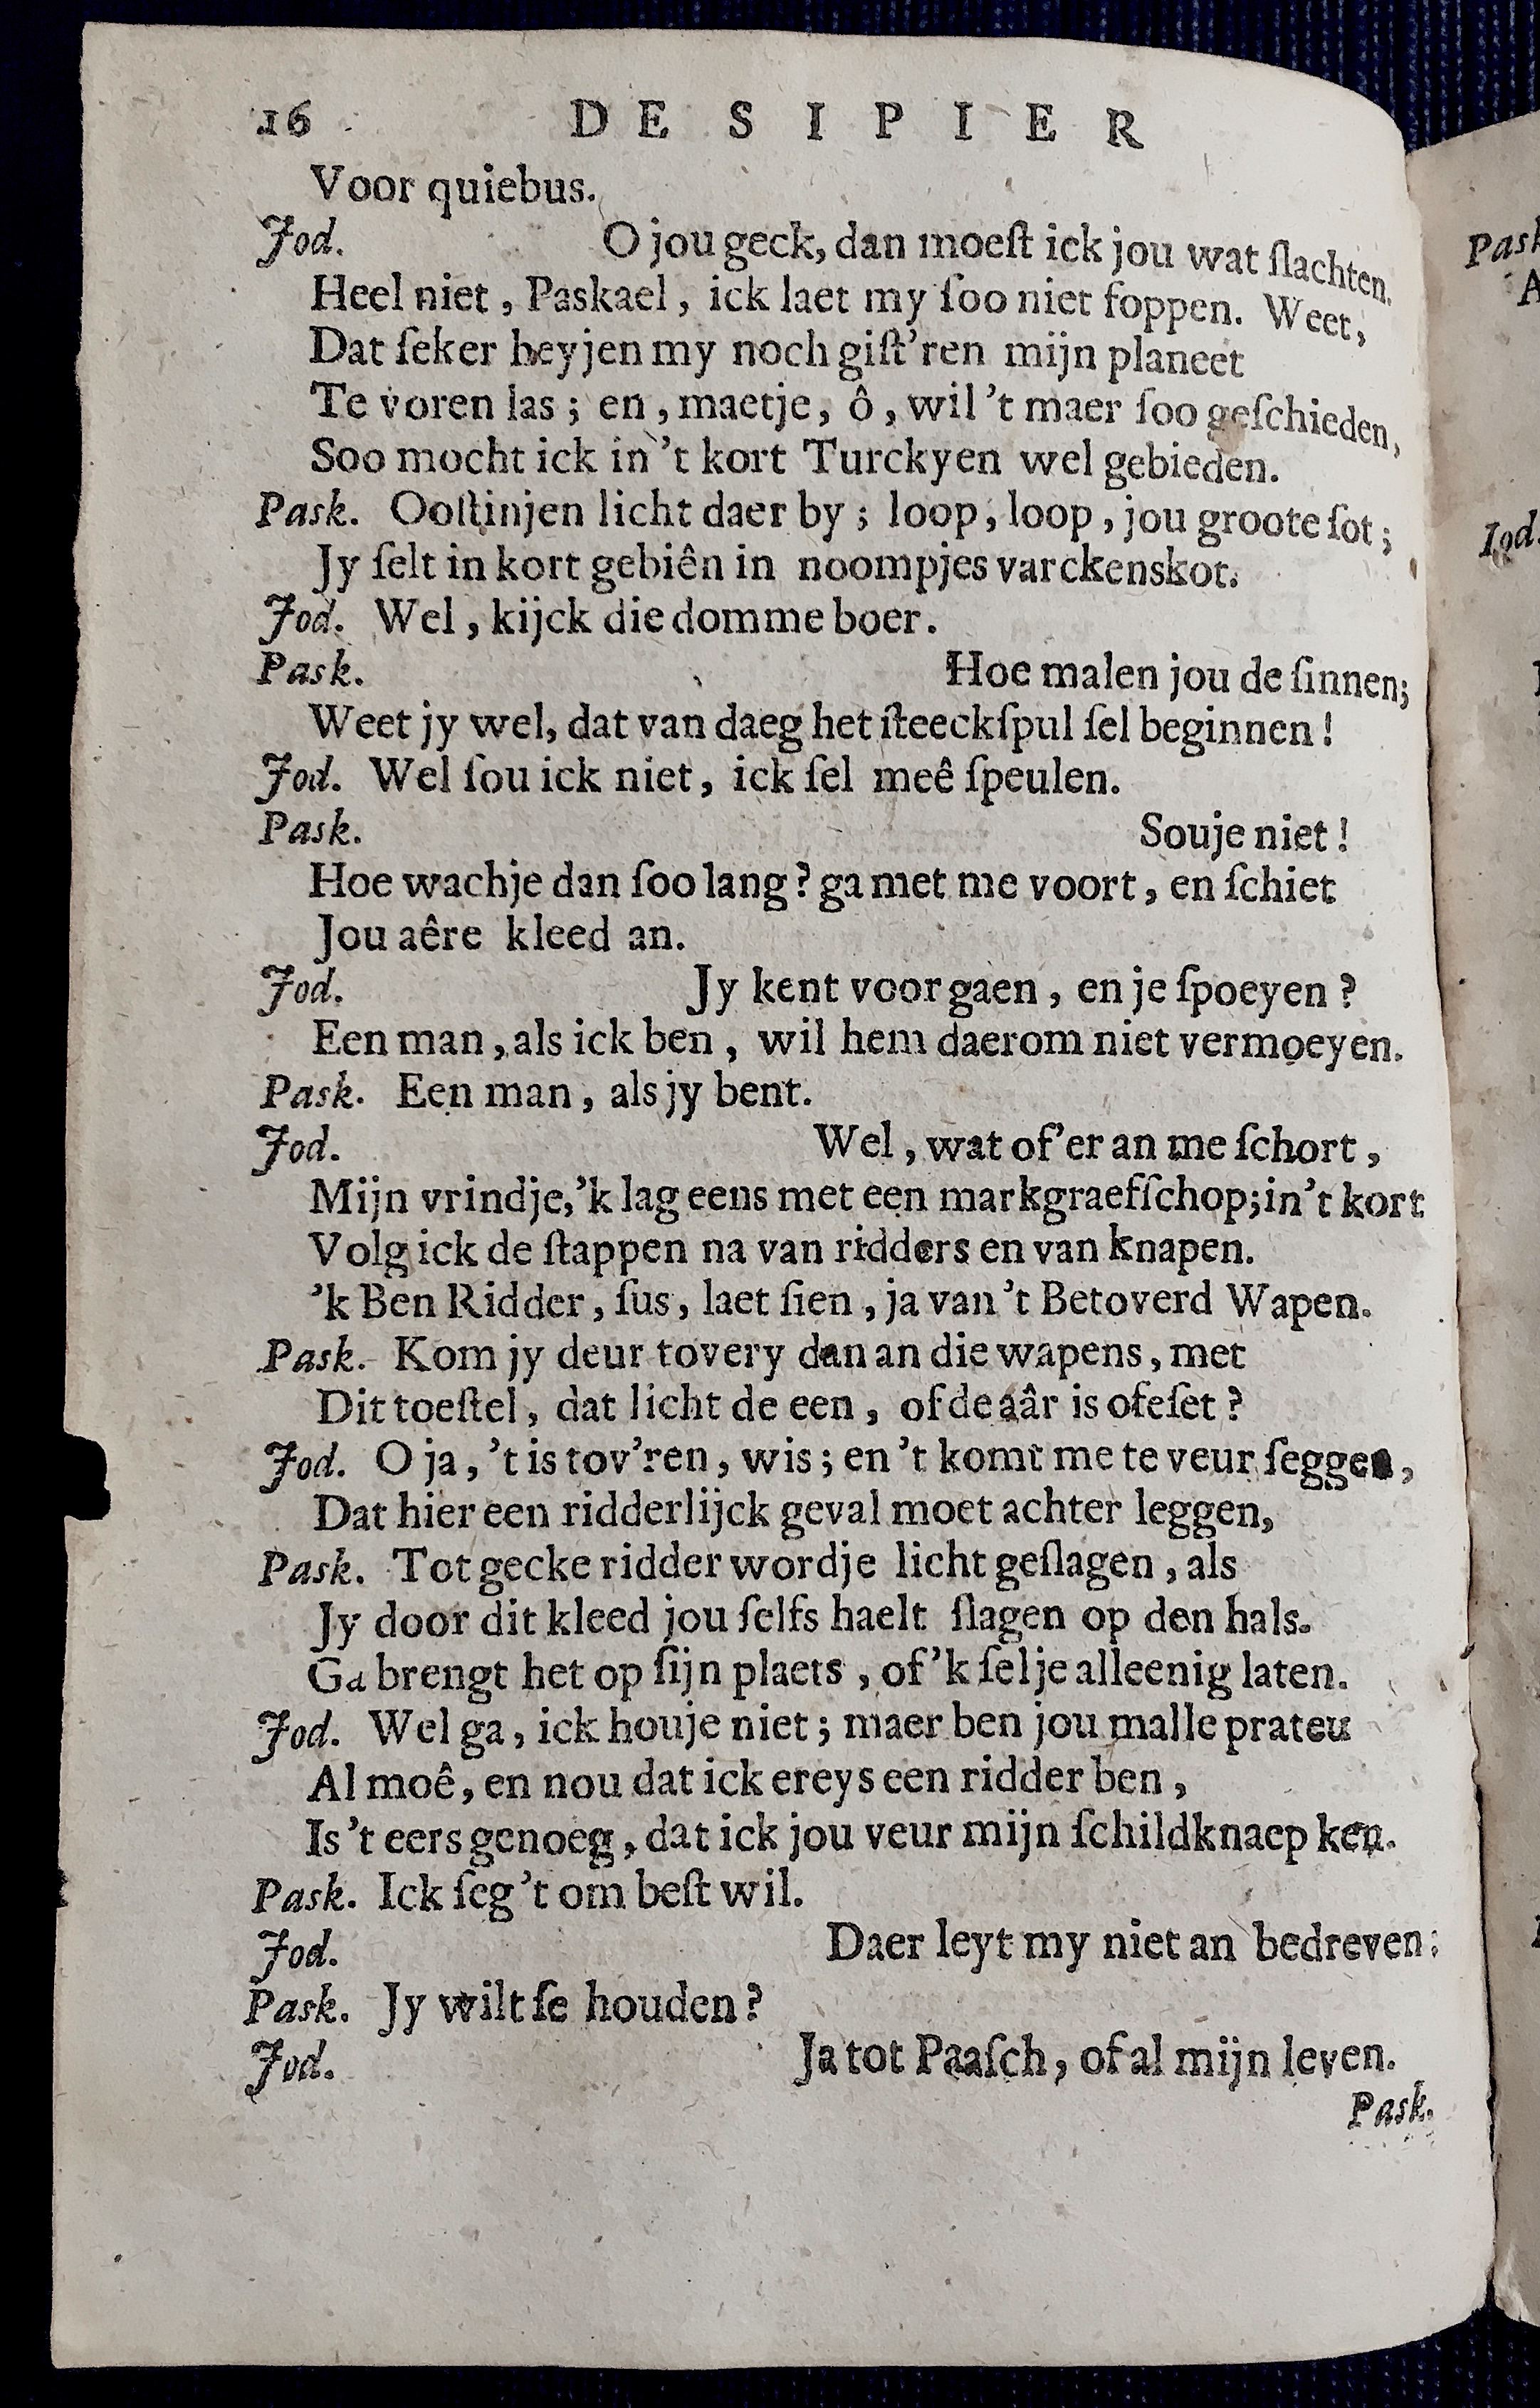 16 DE SIPIER
Voor quiebus.
Jod. O jou geck, dan moeſt ick jou wat ſlachten.
Heel niet, Paskael, ick laet my ſoo niet foppen. Weet,
Dat ſeker heyjen my noch giſt'ren mijn planeet
Te voren las; en, maetje, ô, wil 't maer ſoo geſchieden,
Soo mocht ick in 't kort Turckyen wel gebieden.
Pask. Ooſtinjen licht daer by; loop, loop, jou groote ſot;
Jy ſelt in kort gebiên in noompjes varckenskot.
Jod. Wel, kijck die domme boer.
Pask. Hoe malen jou de ſinnen;
Weet jy wel, dat van daeg het ſteeckſpul ſel beginnen!
Jod. Wel ſou ick niet, ick ſel meê ſpeulen.
Pask. Souje niet!
Hoe wachje dan ſoo lang? ga met me voort, en ſchiet
Jou aêre kleed an.
Jod. Jy kent voor gaen, en je ſpoeyen?
Een man, als ick ben, wil hem daerom niet vermoeyen.
Pask. Een man, als jy bent.
Jod. Wel, wat of'er an me ſchort,
Mijn vrindje, 'k lag eens met een markgraefſchop; in 't kort
Volg ick de ſtappen na van ridders en van knapen.
'k Ben Ridder, ſus, laet ſien, ja van 't Betoverd Wapen.
Pask. Kom jy deur tovery dan an die wapens, met
Dit toeſtel, dat licht de een, of de aâr is ofeſet?
Jod. O ja, 't is tov'ren, wis; en 't komt me te veur ſeggen,
Dat hier een ridderlijck geval moet achter leggen,
Pask. Tot gecke ridder wordje licht geſlagen, als
Jy door dit kleed jou ſelfs haelt ſlagen op den hals.
Ga brengt het op ſijn plaets, of 'k ſel je alleenig laten.
Jod. Wel ga, ick houje niet; maer ben jou malle prateu
Al moê, en nou dat ick ereys een ridder ben,
Is 't eers genoeg, dat ick jou veur mijn ſchildknaep ken.
Pask. Ick ſeg 't om beſt wil.
Jod. Daer leyt my niet an bedreven:
Pask. Jy wilt ſe houden?
Jod. Ja tot Paaſch, of al mijn leven.
Pask.
Pask
A
Iod.